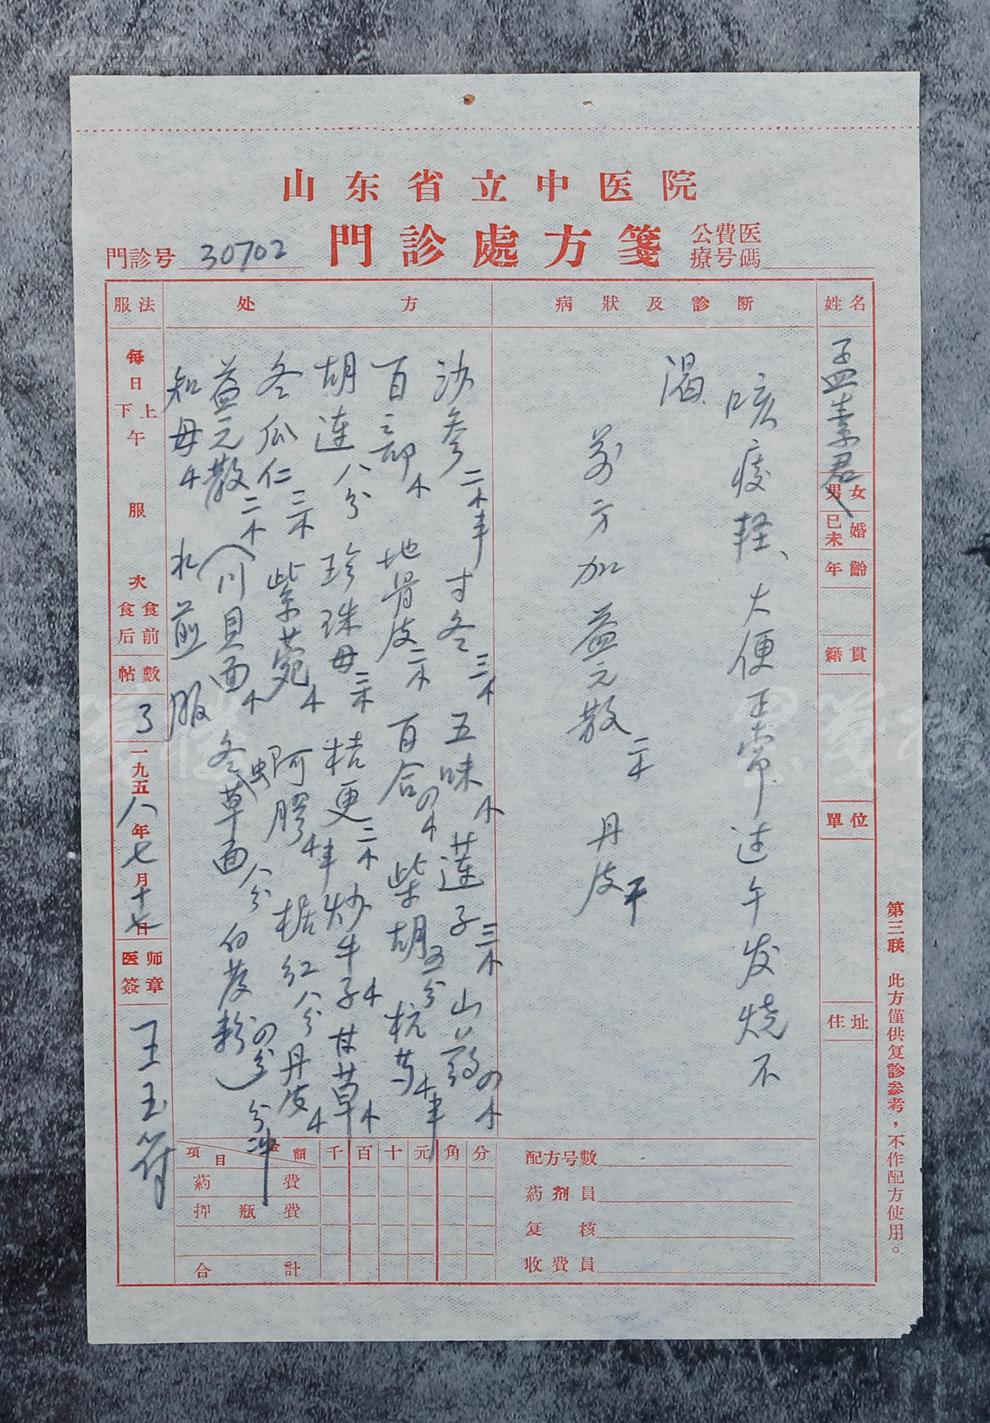 山东省立中医院
門診處方箋
門診号 30702
公費医療号碼
姓名
孟素君
男女
已未婚
年齡
籍貫
單位
住址
病狀及診断
咳痰轻、大便正常、过午发烧不
渴、
前方加益元散二木 丹皮木
处方
沙参二木半 寸冬三木 五味木 莲子三木 山药四木
百部木 地骨皮二木 百合四木 柴胡五分 杭芍木半
胡连八分 珍珠母三木 桔更三木 炒牛子木 甘草木
冬瓜仁三木 紫菀木 阿膠木半 桔红八分 丹皮木
益元散二木 (川貝面木 冬虫草面八分 白芨粉四分) 分冲
知母木 水煎服
服法
每日上下午服 次
食前
食后
帖數
3
一九五八年七月十七日
医师簽章
王玉符
項目 金額 千百十元角分
葯費
押瓶費
合計
配方号數
葯剂員
复核
收費員
第三联 此方僅供复診参考，不作配方使用。